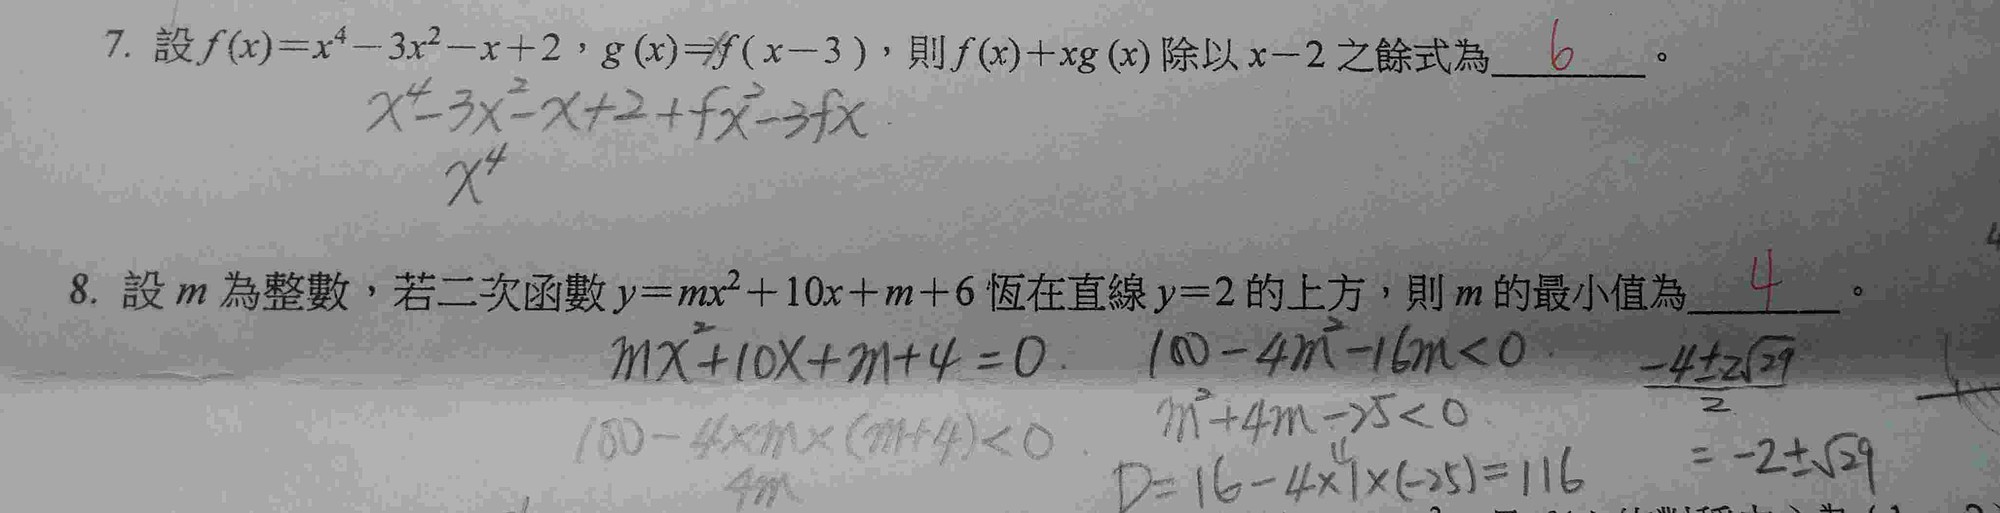 7. 設 f(x)=x⁴－3x²－x＋2，g(x)=f(x－3)，則 f(x)＋xg(x) 除以 x－2 之餘式為 6 。
x⁴-3x²-x+2+fx²-3fx
x⁴
8. 設 m 為整數，若二次函數 y=mx²＋10x＋m＋6 恆在直線 y=2 的上方，則 m 的最小值為 4 。
mx²+10x+m+4=0. 100-4m²-16m<0. -4±2√29
2
100-4×m×(m+4)<0. m²+4m-25<0.
4m D=16-4×1×(-25)=116 =-2±√29